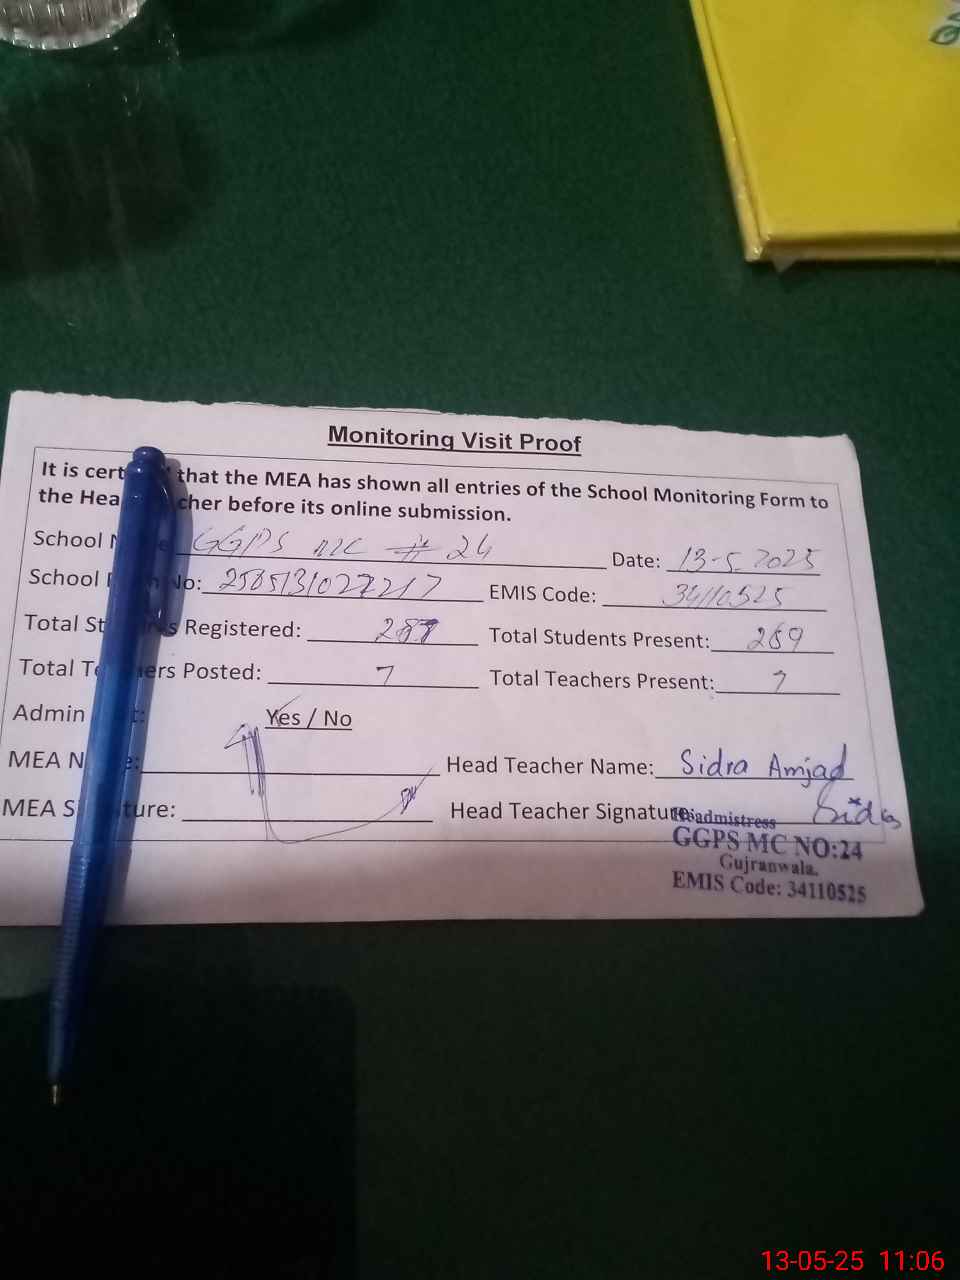 Monitoring Visit Proof
It is cert that the MEA has shown all entries of the School Monitoring Form to
the Hea cher before its online submission.
School N e GGPS MC # 24 Date: 13-5-2025
School No: EMIS Code: 34110525
Total St s Registered: Total Students Present: 269
Total T ers Posted: 7 Total Teachers Present: 7
Admin t: Yes / No
MEA N e: Head Teacher Name: Sidra Amjad
MEA S ture: Head Teacher Signature: Sidra
Headmistress
GGPS MC NO:24
Gujranwala.
EMIS Code: 34110525
13-05-25 11:06